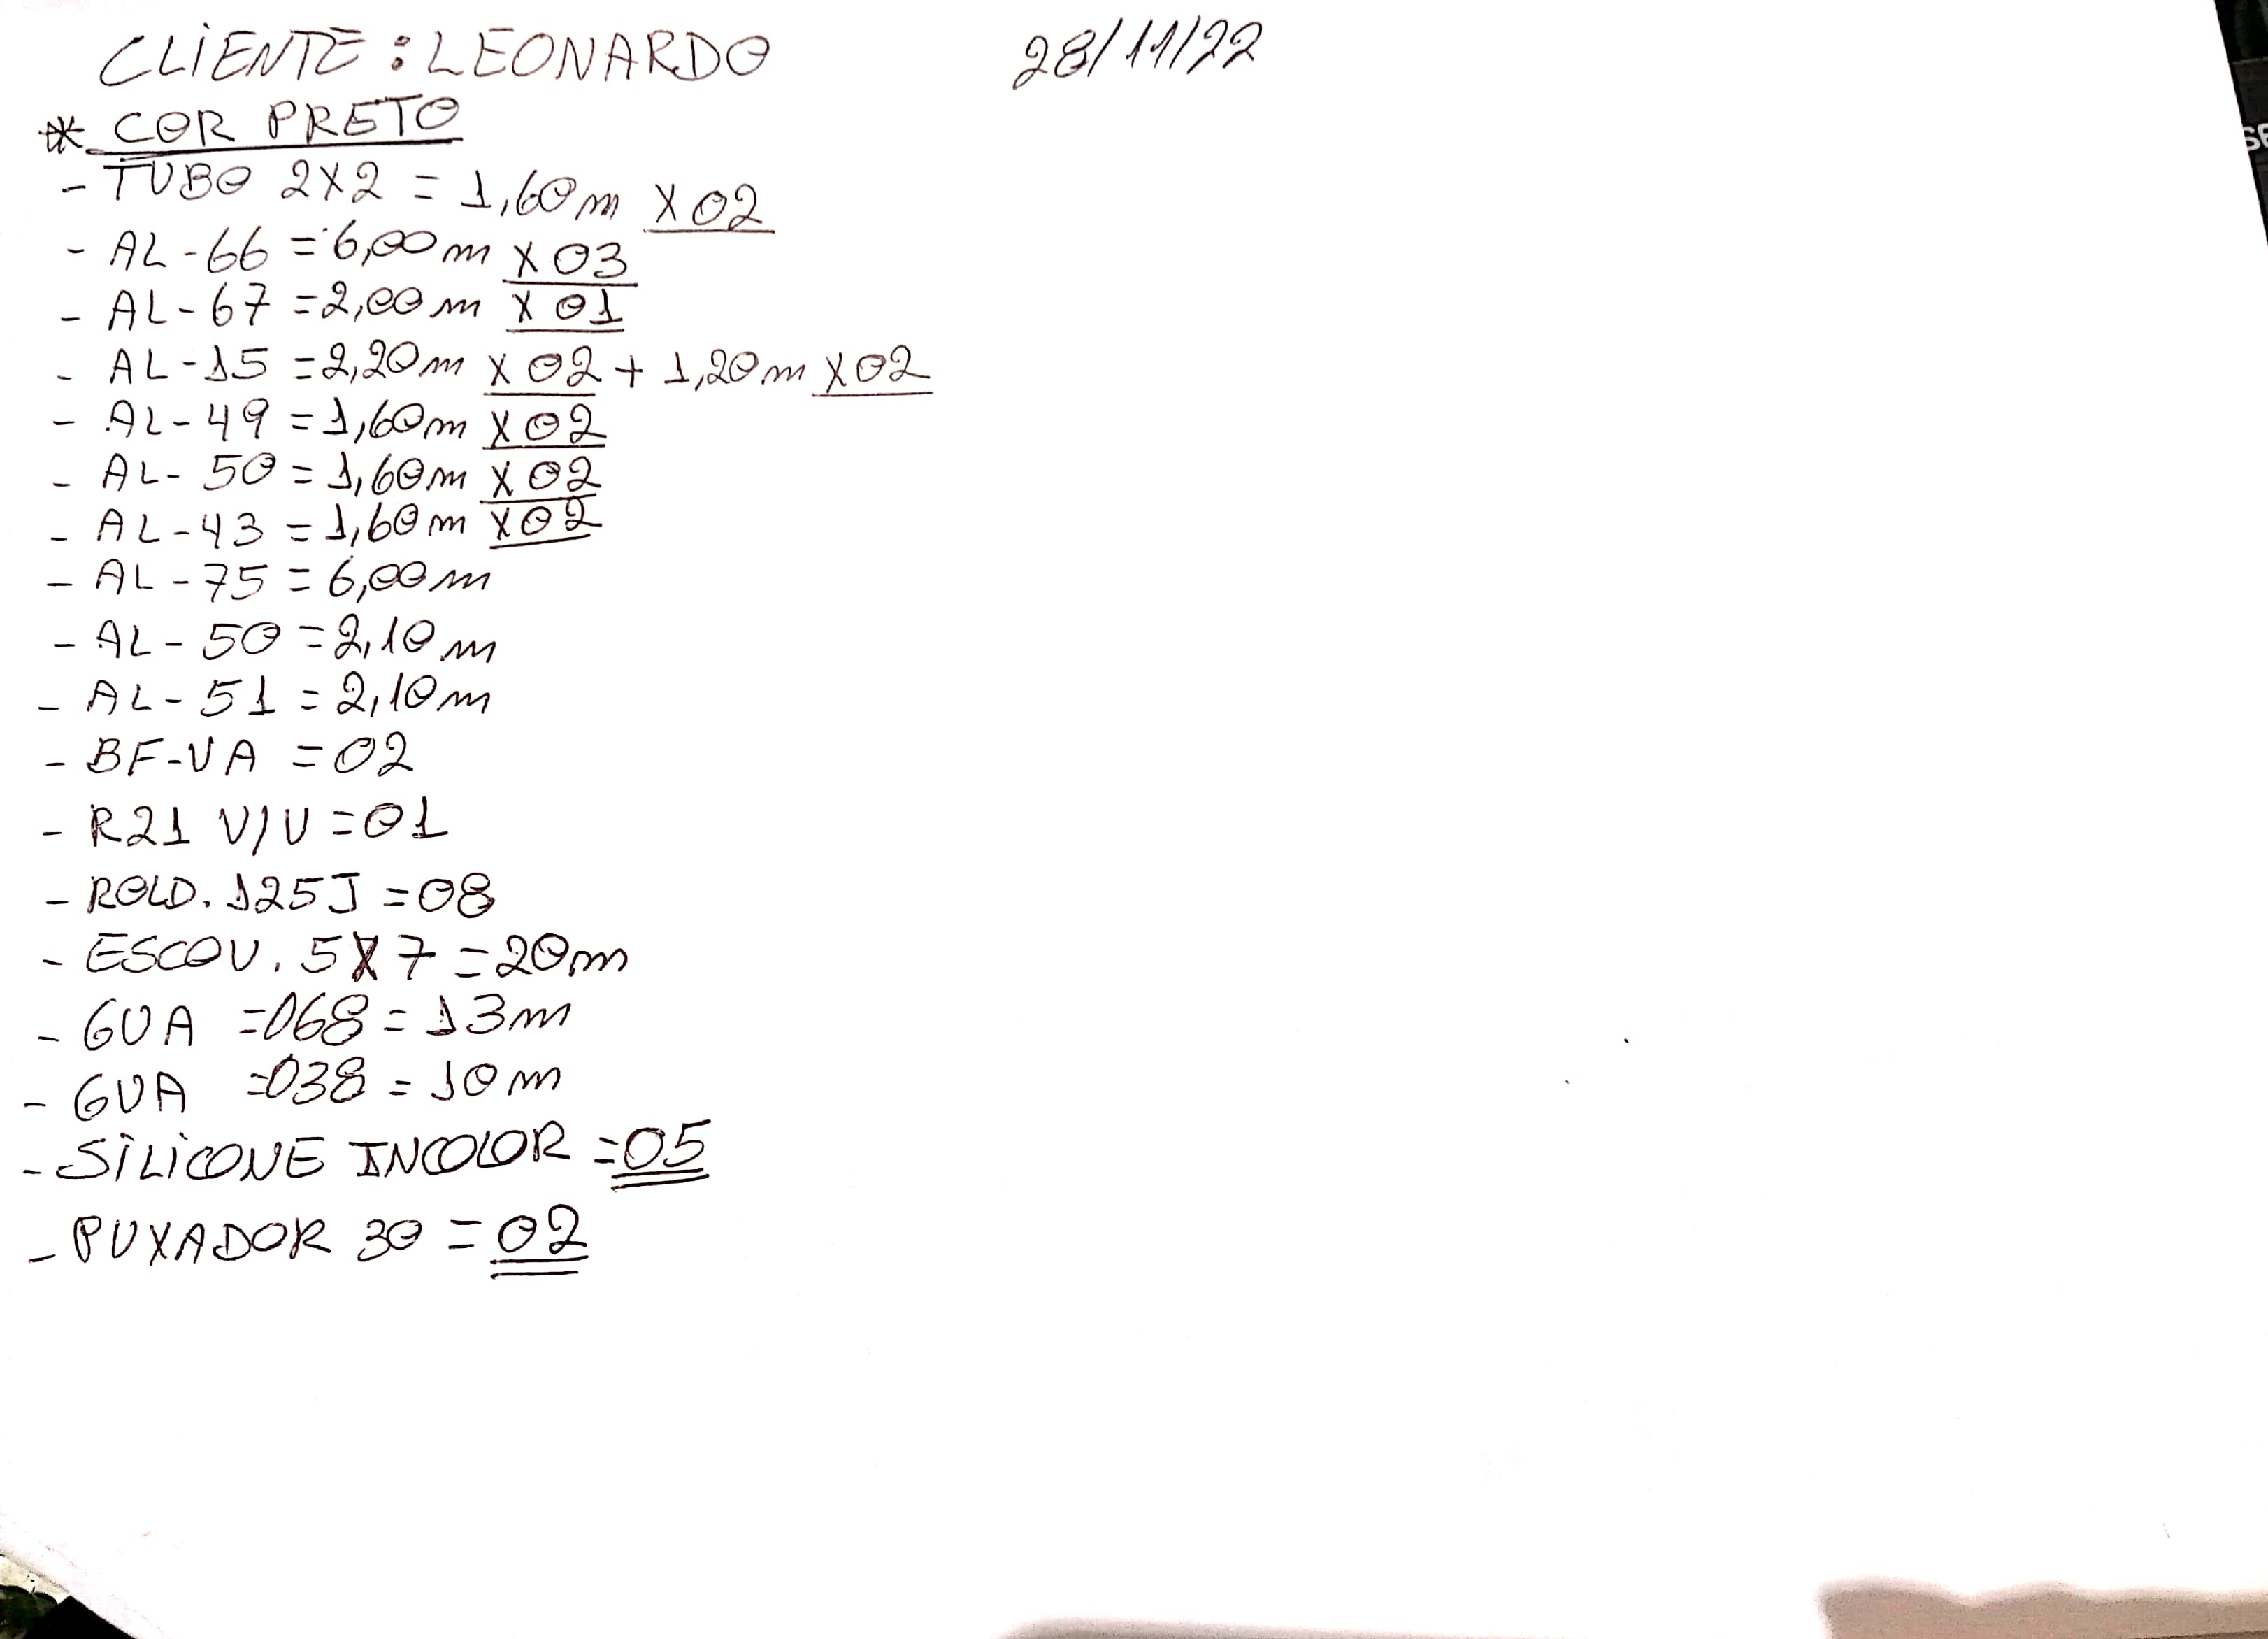 CLIENTE: LEONARDO 28/11/22
* COR PRETO
- TUBO 2X2 = 1,60m X 02
- AL-66 = 6,00m X 03
- AL-67 = 2,00m X 01
- AL-15 = 2,20m X 02 + 1,20m X 02
- AL-49 = 1,60m X 02
- AL-50 = 1,60m X 02
- AL-43 = 1,60m X 02
- AL-75 = 6,00m
- AL-50 = 2,10m
- AL-51 = 2,10m
- BF-VA = 02
- R21 V/V = 01
- ROLD. 125J = 08
- ESCOV. 5X7 = 20m
- GUA = 068 = 13m
- GUA = 038 = 10m
- SILICONE INCOLOR = 05
- PUXADOR 30 = 02